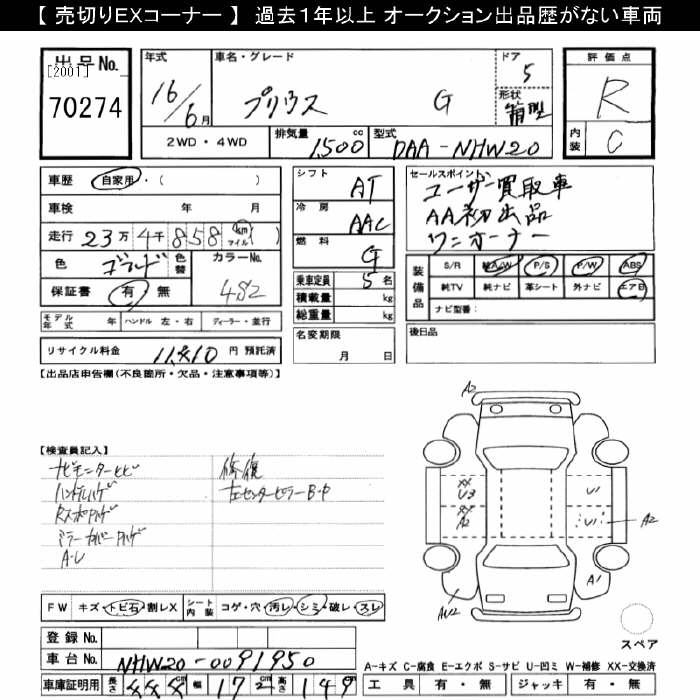 【 売切りEXコーナー 】 過去1年以上 オークション出品歴がない車両
出品No.
[2001]
70274
年式 16/6月
車名・グレード プリウス G
ドア 5
形状 箱型
評価点 R
内装 C
2WD・4WD
排気量 1500 cc
型式 DAA-NHW20
車歴 自家用・( )
車検 年 月
走行 23万4千858 km マイル ( )
色 ゴールド 色替 カラーNo. 482
保証書 有・無
モデル年式 年 ハンドル 左・右 ディーラー・並行
リサイクル料金 11,810 円 預託済
シフト AT
冷房 AAC
燃料 G
乗車定員 5 名
積載量 kg
総重量 kg
名変期限 月 日
セールスポイント
ユーザー買取車
AA初出品
ワンオーナー
装備品
S/R 純A/W P/S P/W ABS
純TV 純ナビ 革シート 外ナビ エアB
ナビ型番:
後日品
【出品店申告欄(不良箇所・欠品・注意事項等)】
【検査員記入】
ナビモニターヒビ 修復
ハンドルハゲ 左センターピラーB・P
A-U
A2
XX
U3
XX
A2
U1
U1
A2
A1
AU2
スペア
FW キズ・トビ石・割レX シート内装 コゲ・穴・汚レ・シミ・破レ・スレ
登録No.
車台No. NHW20-0091950
車庫証明用 長さ 444 cm 幅 172 cm 高さ 149 cm
A-キズ C-腐食 E-エクボ S-サビ U-凹ミ W-補修 XX-交換済
工具 有・無 ジャッキ 有・無